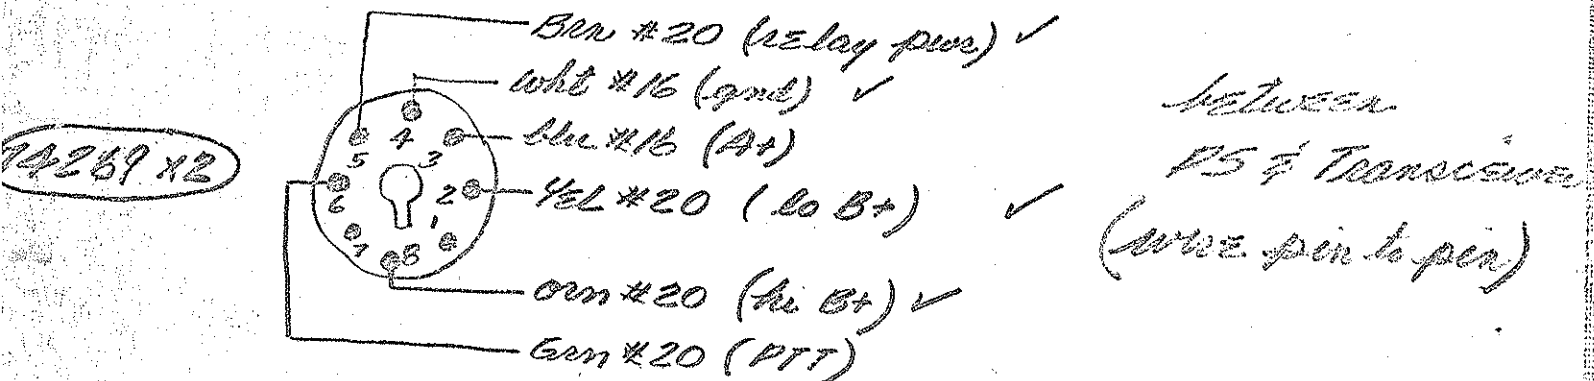 Brn #20 (relay pwr) ✓
wht #16 (gnd) ✓
blu #16 (A+)
YEL #20 (lo B+) ✓
orn #20 (hi B+) ✓
Grn #20 (PTT)
5 4 3
6 2
7 8 1
between
PS & Transceiver
(wire pin to pin)